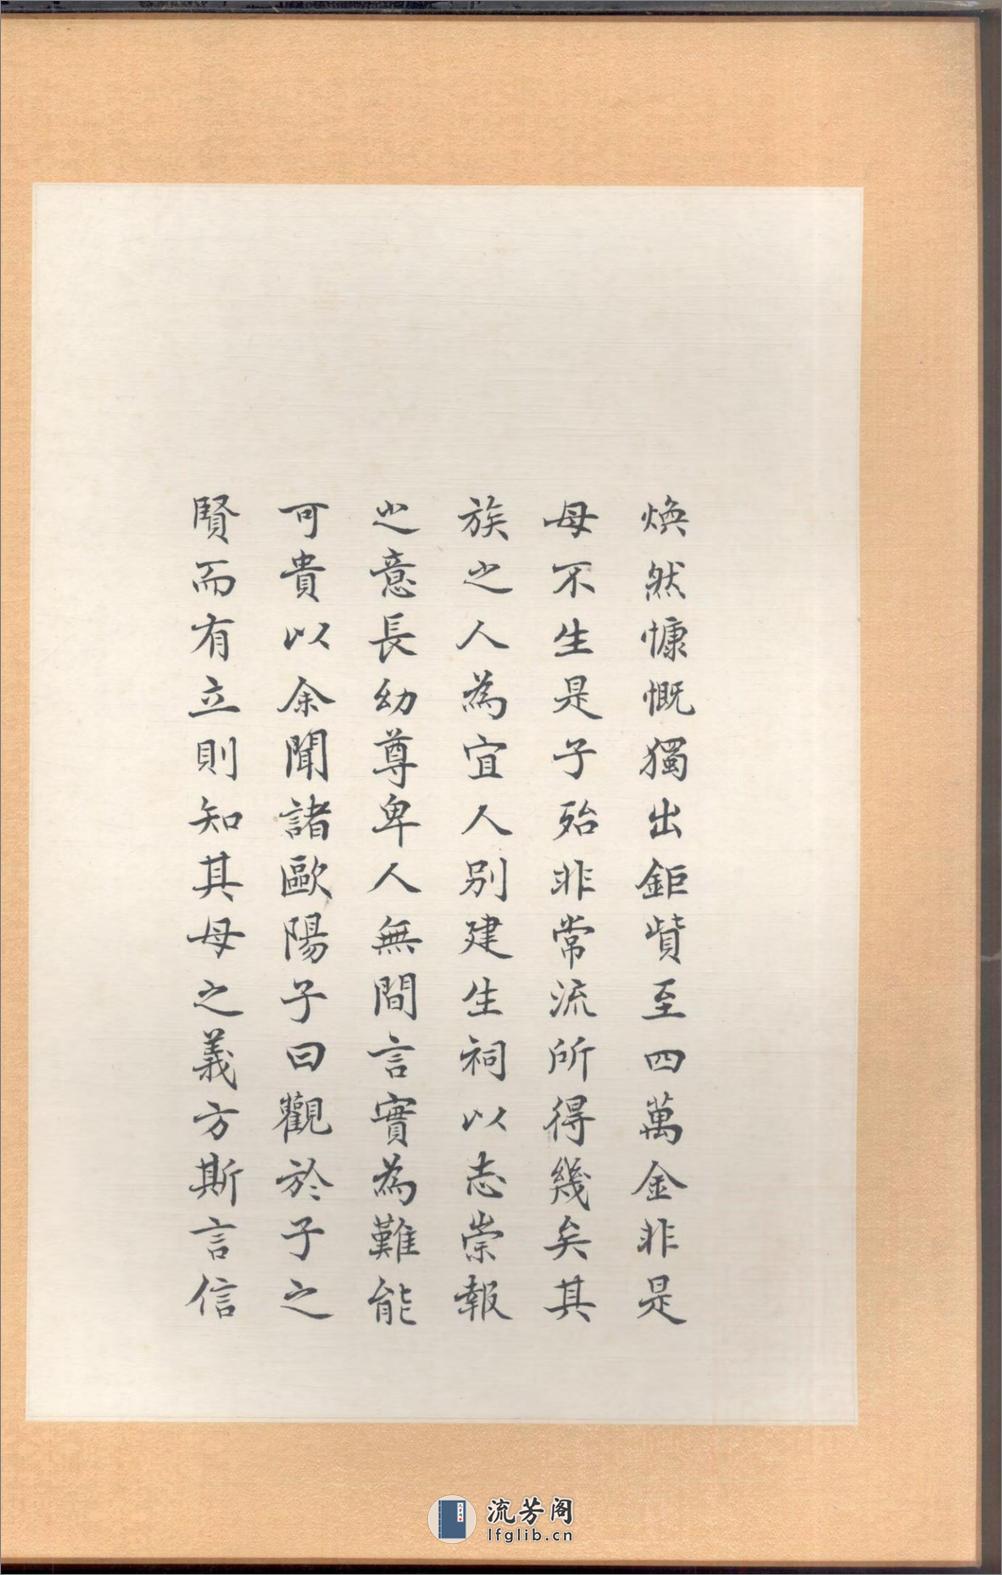 煥然慷慨獨出鉅貲至四萬金非是
母不生是子殆非常流所得幾矣其
族之人為宜人別建生祠以志崇報
之意長幼尊卑人無間言實為難能
可貴以余聞諸歐陽子曰觀於子之
賢而有立則知其母之義方斯言信
流芳阁
lfglib.cn